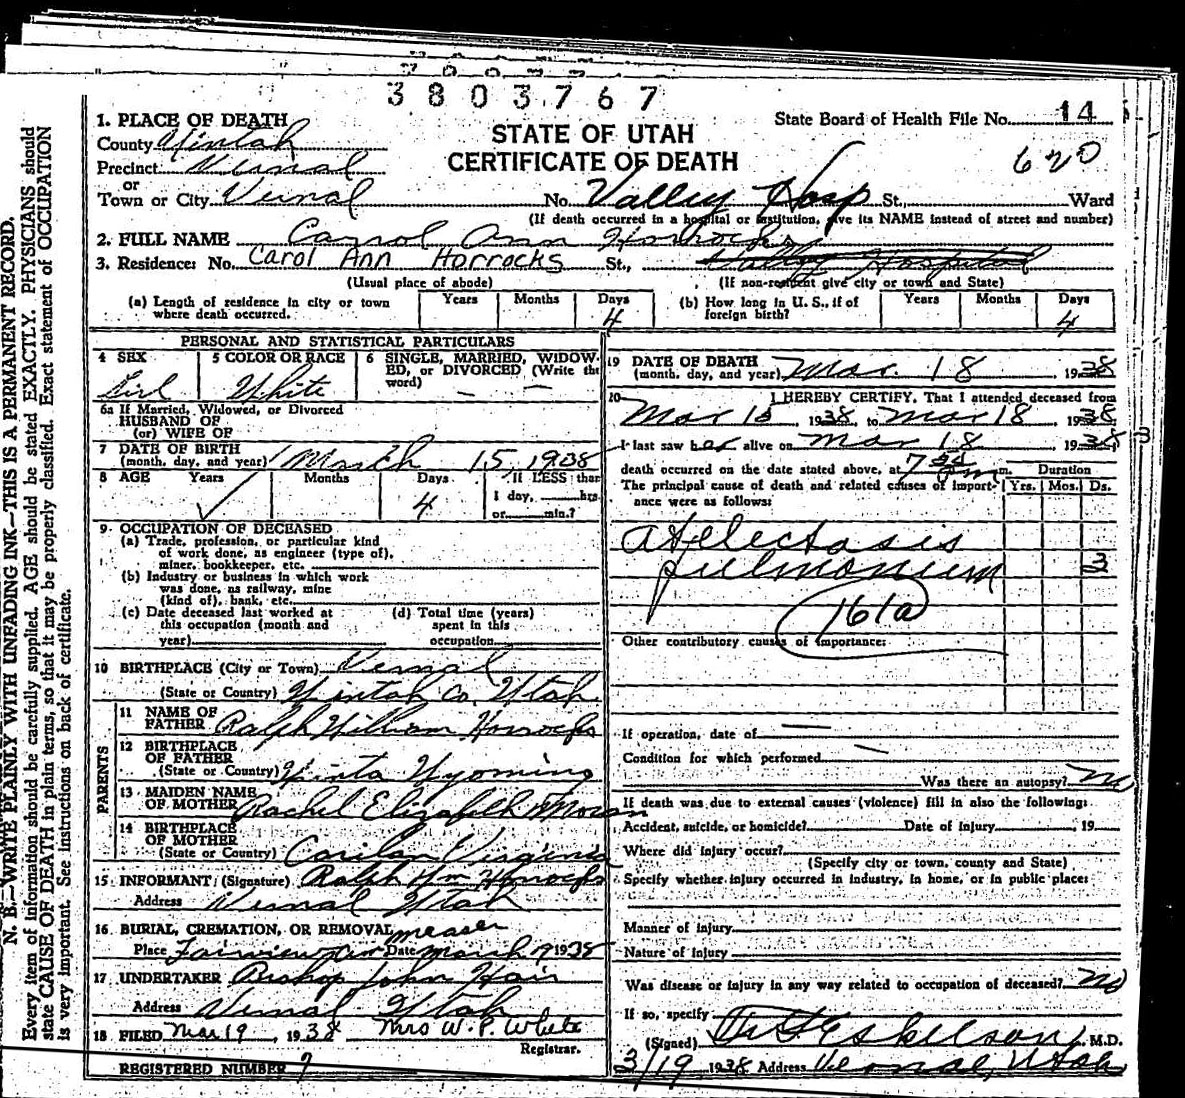 3803767
1. PLACE OF DEATH
STATE OF UTAH
CERTIFICATE OF DEATH
State Board of Health File No. 14
620
County Uintah
Precinct Vernal
or
Town or City Vernal No. Valley Hosp St., Ward
(If death occurred in a hospital or institution, give its NAME instead of street and number)
2. FULL NAME Carrol Ann Horrocks
3. Residence: No. Carol Ann Horrocks St., Valley Hospital
(Usual place of abode) (If non-resident give city or town and State)
(a) Length of residence in city or town where death occurred. Years Months Days 4
(b) How long in U. S., if of foreign birth? Years Months Days 4
PERSONAL AND STATISTICAL PARTICULARS
4 SEX Girl
5 COLOR OR RACE White
6 SINGLE, MARRIED, WIDOWED, or DIVORCED (Write the word) —
6a If Married, Widowed, or Divorced
HUSBAND OF
(or) WIFE OF
7 DATE OF BIRTH
(month, day, and year) March 15, 1938
8 AGE Years Months Days 4 If LESS than
1 day, hrs.
or min.?
9 OCCUPATION OF DECEASED
(a) Trade, profession, or particular kind
of work done, as engineer (type of),
miner, bookkeeper, etc.
(b) Industry or business in which work
was done, as railway, mine
(kind of), bank, etc.
(c) Date deceased last worked at
this occupation (month and
year)
(d) Total time (years)
spent in this
occupation
10 BIRTHPLACE (City or Town) Vernal
(State or Country) Uintah Co. Utah
PARENTS
11 NAME OF
FATHER Ralph William Horrocks
12 BIRTHPLACE
OF FATHER
(State or Country) Uinta Wyoming
13 MAIDEN NAME
OF MOTHER Rachel Elizabeth
14 BIRTHPLACE
OF MOTHER
(State or Country) Virginia
15 INFORMANT: (Signature) Ralph Wm Horrocks
Address Vernal Utah
16 BURIAL, CREMATION, OR REMOVAL
Place Date March 19 1938
17 UNDERTAKER Bishop John Hair
Address Vernal Utah
18 FILED Mar 19, 1938 Mrs W. P. White
Registrar.
REGISTERED NUMBER 7
19 DATE OF DEATH
(month, day, and year) Mar. 18, 1938
20 I HEREBY CERTIFY, That I attended deceased from
Mar 15, 1938, to Mar 18, 1938
I last saw her alive on Mar 18, 1938
death occurred on the date stated above, at 7 pm m. Duration
The principal cause of death and related causes of importance were as follows: Yrs. Mos. Ds.
Atelectasis
pulmonium 3
161a
Other contributory causes of importance:
If operation, date of —
Condition for which performed —
Was there an autopsy? No
If death was due to external causes (violence) fill in also the following:
Accident, suicide, or homicide? Date of injury , 19
Where did injury occur?
(Specify city or town, county and State)
Specify whether injury occurred in industry, in home, or in public place:
Manner of injury
Nature of injury
Was disease or injury in any way related to occupation of deceased? No
If so, specify
(Signed) Eskelson, M.D.
3/19 1938 Address Vernal, Utah
N. B.—WRITE PLAINLY WITH UNFADING INK—THIS IS A PERMANENT RECORD.
Every item of information should be carefully supplied. AGE should be stated EXACTLY. PHYSICIANS should
state CAUSE OF DEATH in plain terms, so that it may be properly classified. Exact statement of OCCUPATION
is very important. See instructions on back of certificate.